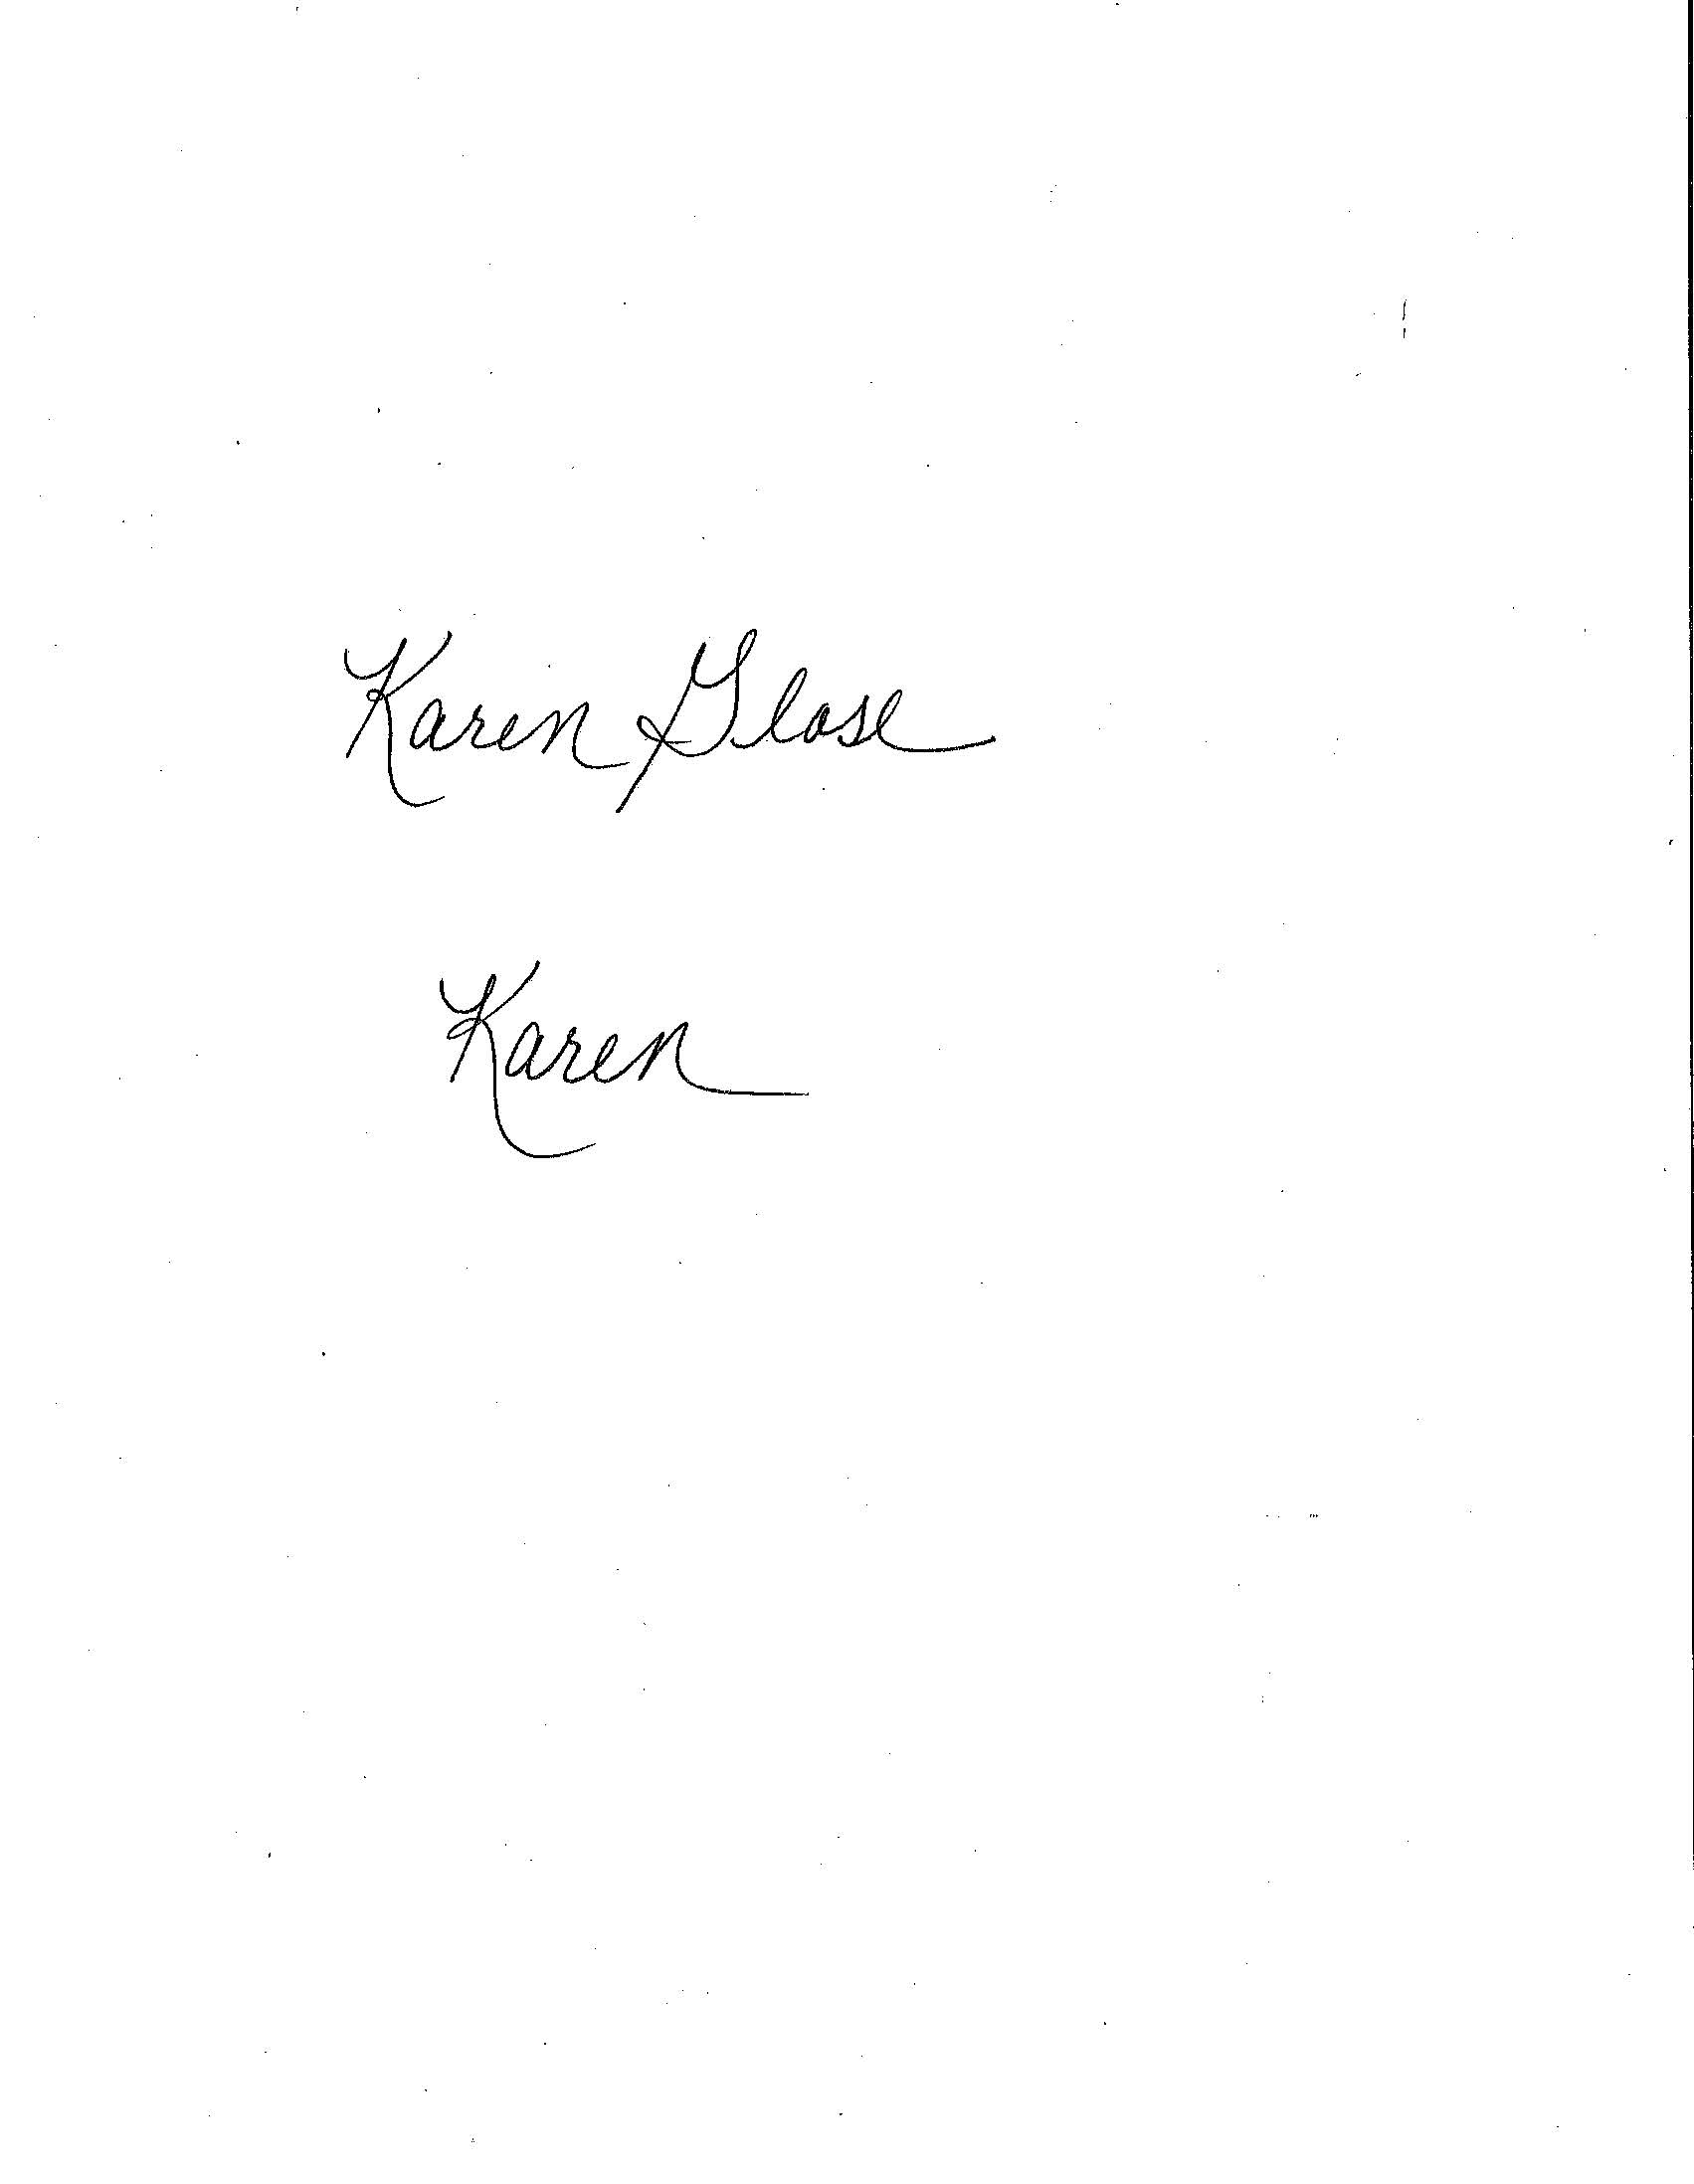 Karen Glose
Karen